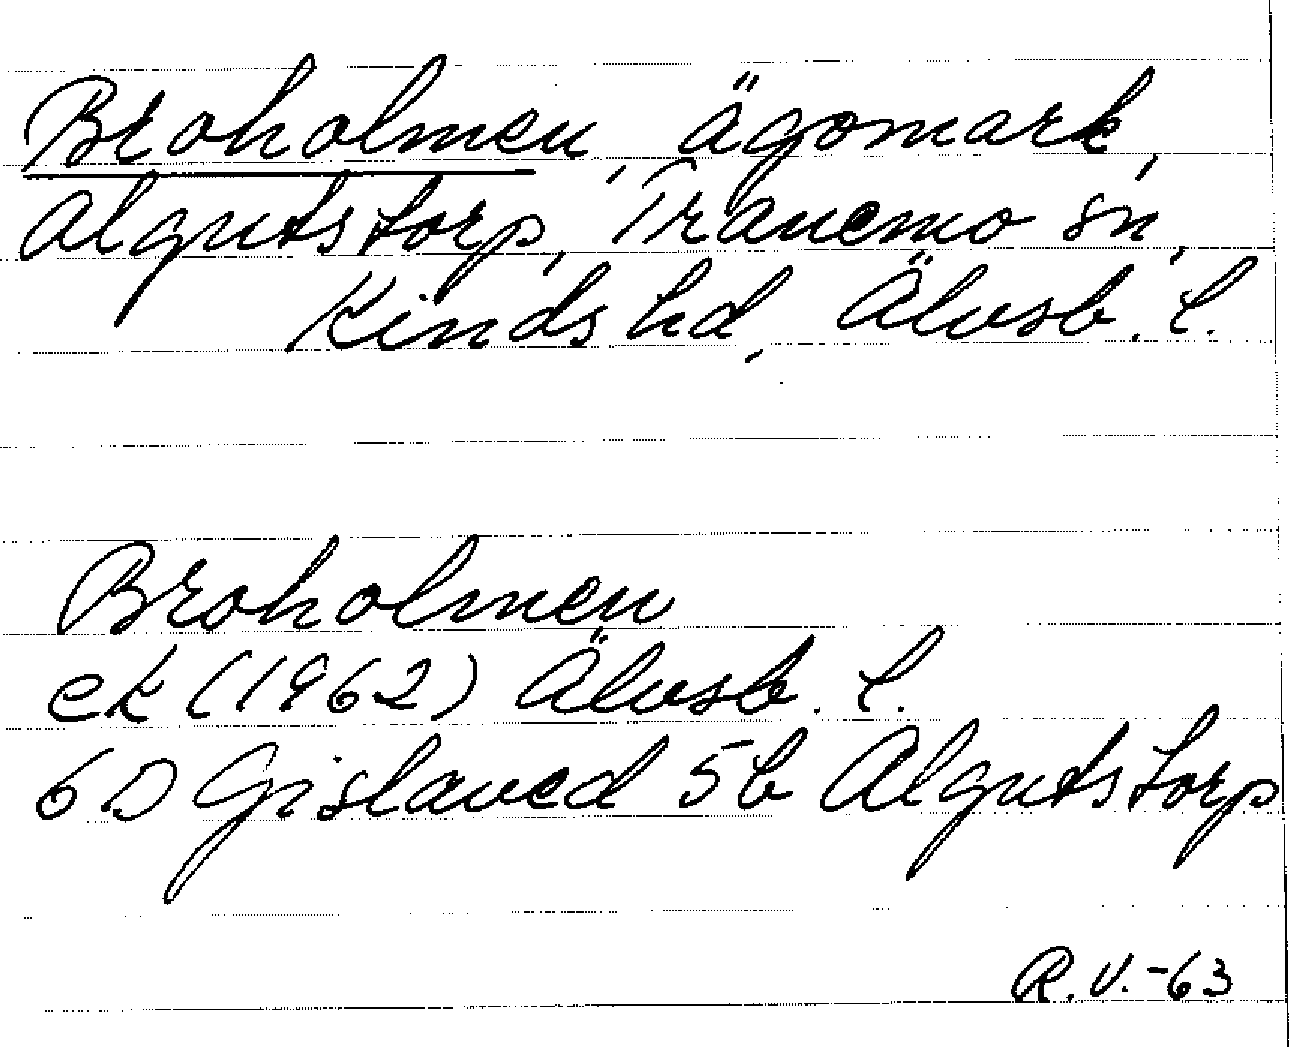 Broholmen, ägomark,
Algutstorp, Tranemo sn,
Kinds hd, Älvsb. l.
Broholmen
ek (1962) Älvsb. l.
6D Gislaved 5b Algutstorp
R.V.-63